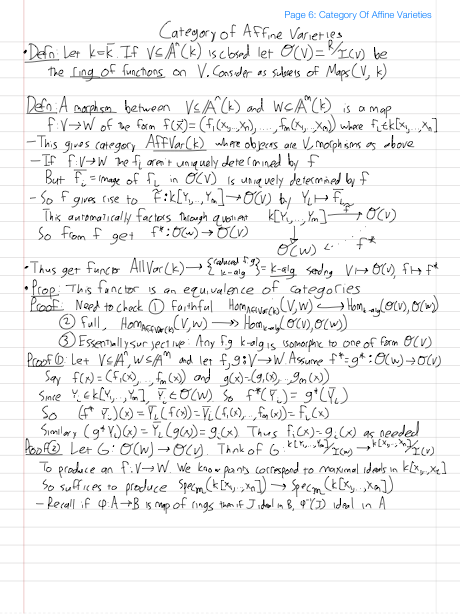 Page 6: Category Of Affine Varieties
Category of Affine Varieties
• Defn: Let k=k̄. If V⊆Aⁿ(k) is closed let O(V)=R/I(V) be
the ring of functions on V. Consider as subsets of Maps(V, k)
Defn: A morphism between V⊆Aⁿ(k) and W⊆Aᵐ(k) is a map
f:V→W of the form f(x⃗)=(f₁(x₁,...,xₙ),...,fₘ(x₁,...,xₙ)) where fᵢ∈k[x₁,...,xₙ]
- This gives category AffVar(k) where objects are V, morphisms as above
- If f:V→W the fᵢ aren't uniquely determined by f
But f̄ᵢ=image of fᵢ in O(V) is uniquely determined by f
- So f gives rise to f̃:k[Y₁,...,Yₘ]→O(V) by Yᵢ↦f̄ᵢ
This automatically factors through quotient k[Y₁,...,Yₘ]→O(V)
So from f get f*:O(W)→O(V) O(W) f*
• Thus get functor AllVar(k)→{reduced f.g. k-alg}=k-alg sending V↦O(V), f↦f*
• Prop: This functor is an equivalence of categories
Proof: Need to check ① Faithful Hom_AffVar(k)(V,W)↪Hom_k-alg(O(V),O(W))
② Full, Hom_AffVar(k)(V,W)↠Hom_k-alg(O(V),O(W))
③ Essentially surjective: Any f.g k-alg is isomorphic to one of form O(V)
Proof①: Let V⊆Aⁿ, W⊆Aᵐ and let f,g:V→W Assume f*=g*:O(W)→O(V)
Say f(x)=(f₁(x),...,fₘ(x)) and g(x)=(g₁(x),...,gₘ(x))
Since Yᵢ∈k[Y₁,...,Yₘ], Ȳᵢ∈O(W) So f*(Ȳᵢ)=g*(Ȳᵢ)
So (f* Ȳᵢ)(x)=Ȳᵢ(f(x))=Ȳᵢ(f₁(x),...,fₘ(x))=fᵢ(x)
Similarly (g*Yᵢ)(x)=Ȳᵢ(g(x))=gᵢ(x) Thus fᵢ(x)=gᵢ(x) as needed
Proof②: Let G:O(W)→O(V). Think of G: k[Y₁,...,Yₘ]/I(W)→k[x₁,...,xₙ]/I(V)
To produce an f:V→W. We know points correspond to maximal ideals in k[x₁,...,xₙ]
So suffices to produce Specₘ(k[x₁,...,xₙ])→Specₘ(k[x₁,...,xₘ])
- Recall if φ:A→B is map of rings then if J ideal in B, φ⁻¹(J) ideal in A